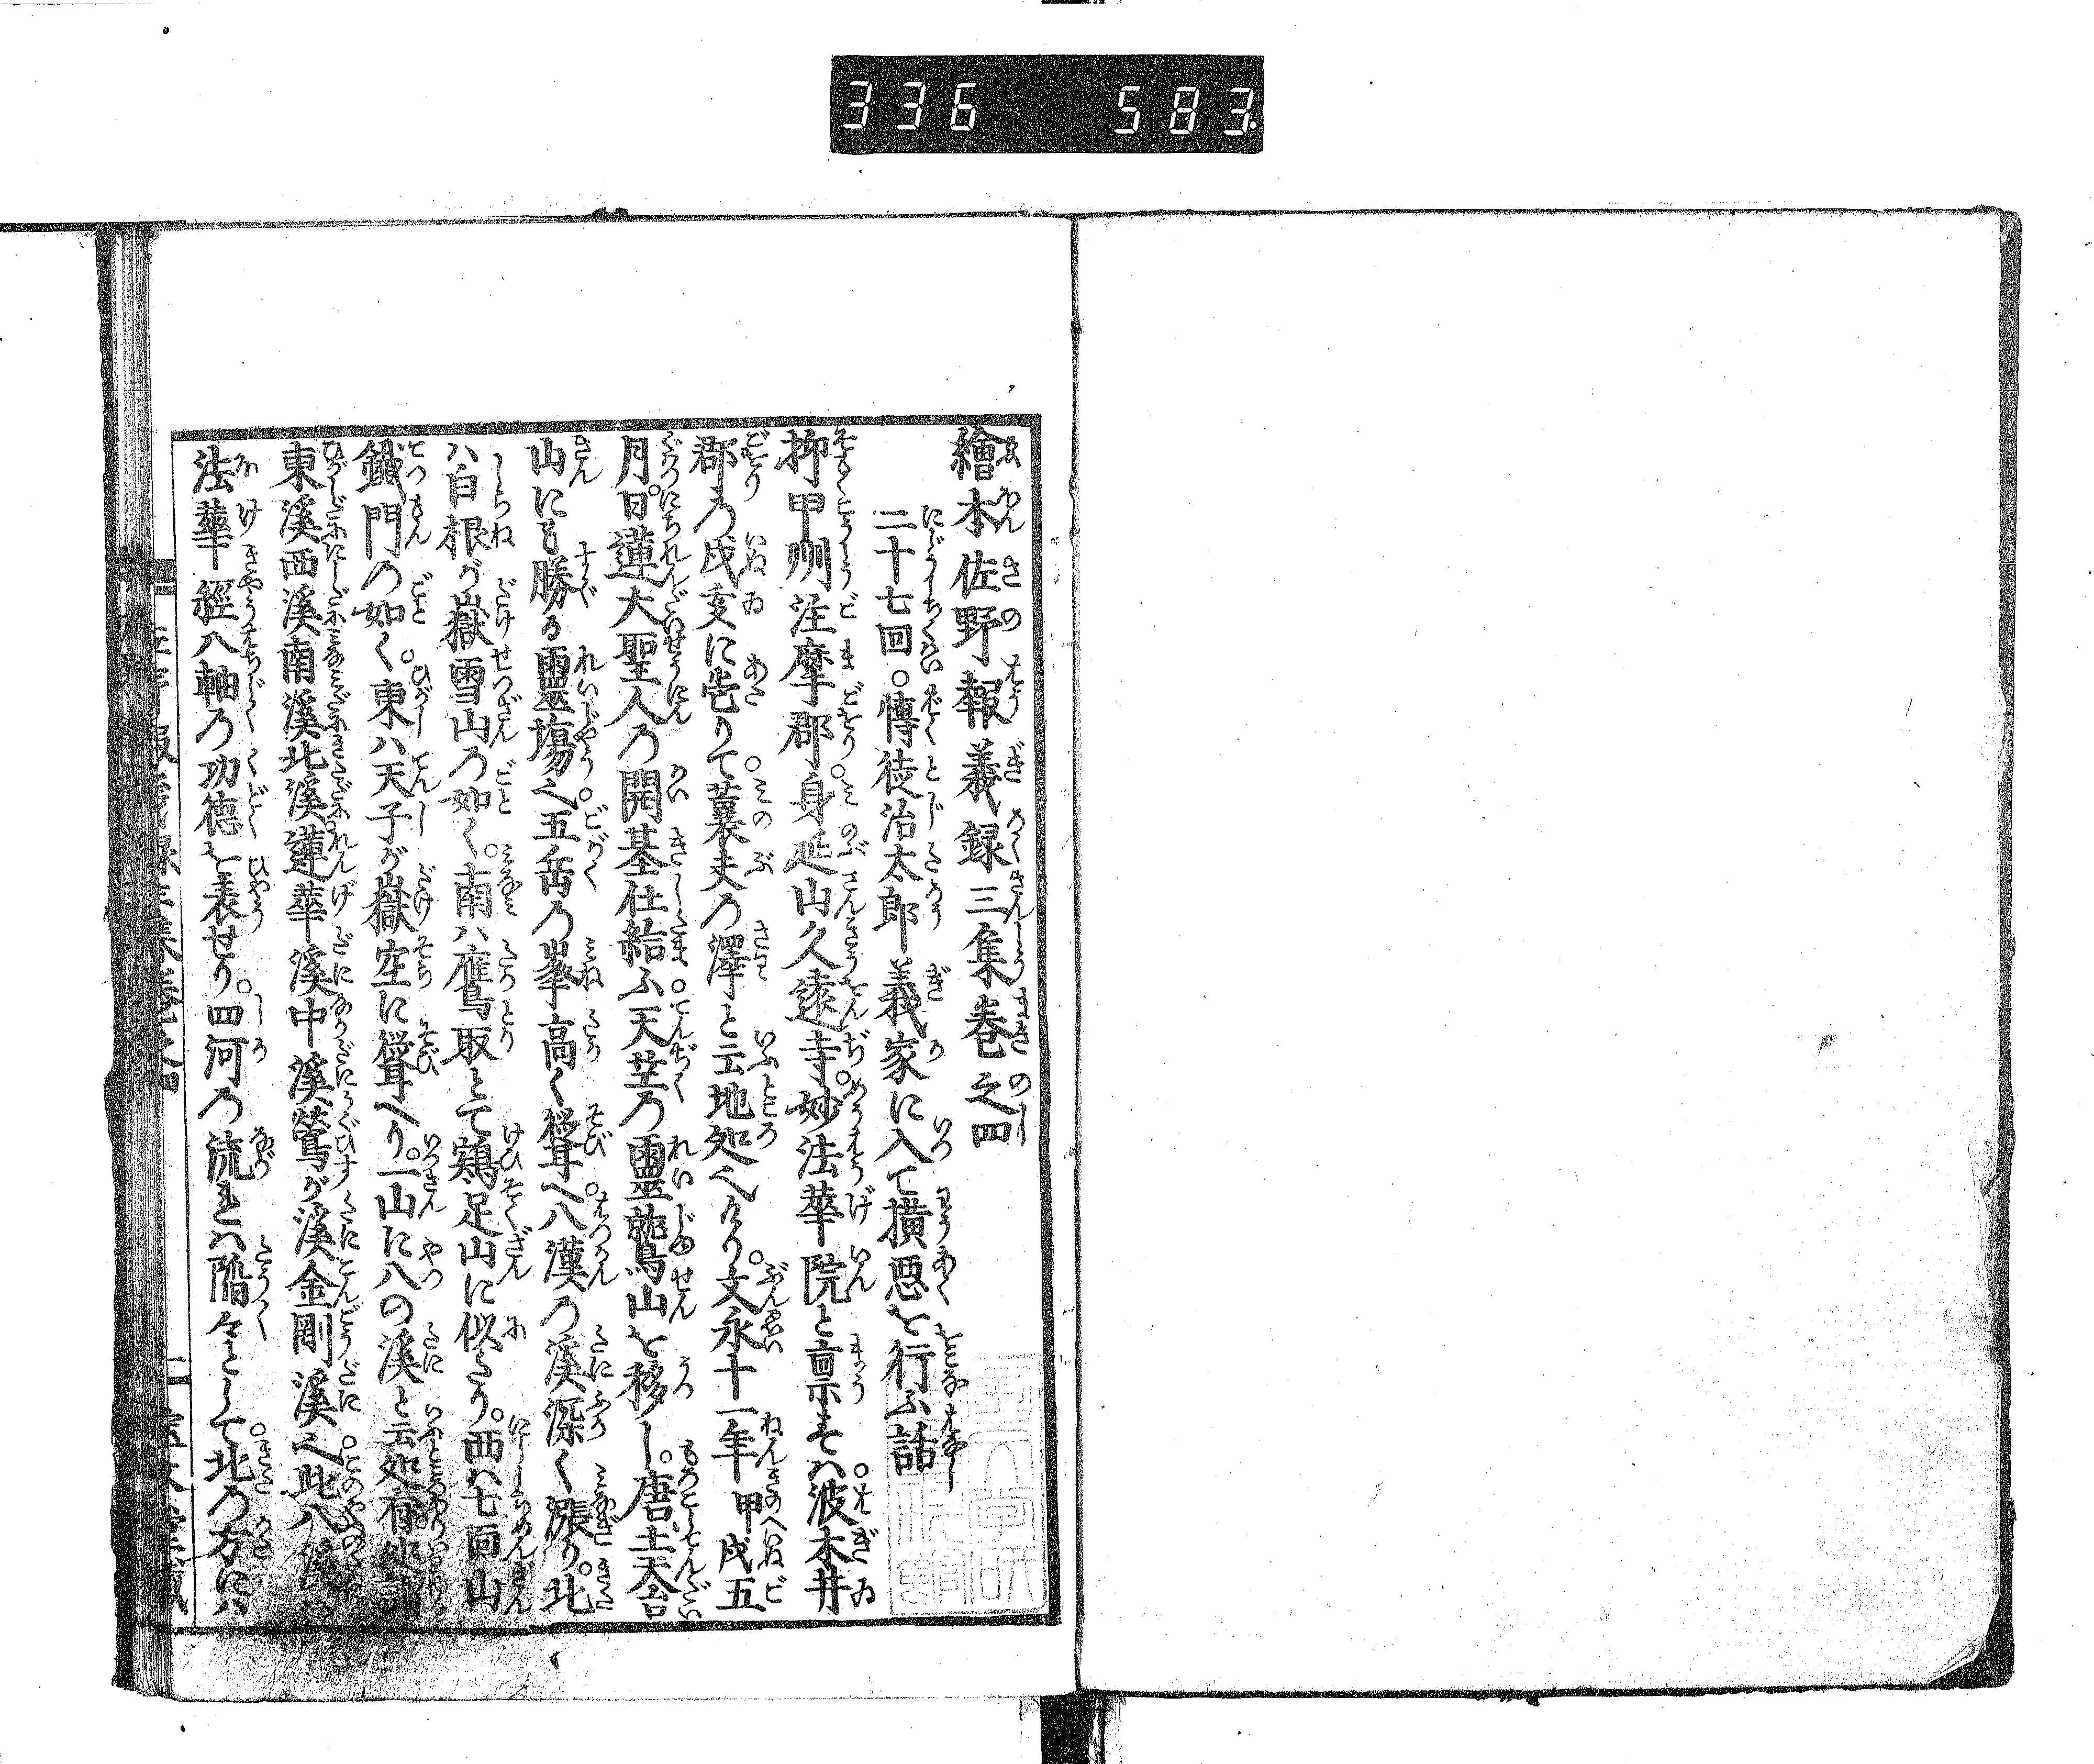 336 583
繪本佐野報義録三集巻之四
二十七回。慱徒治太郎義家に入て横悪を行ふ話
抑甲州巨摩郡。身延山久遠寺。妙法華院と稟するハ。波木井
郡の戌亥に當りて。蓑夫の澤と云地処也けり。文永十一年甲戌五
月。日蓮大聖人の開基仕給ふ。天竺の靈鷲山を移し。唐土天台
山にも勝る靈場也。五岳の峯高く聳へ。八漢の溪深く漲り。北
ハ白根が嶽雪山の如く。南ハ鷹取とて鶏足山に似たり。西ハ七面山
鐵門の如く。東ハ天子が嶽空に聳へり。一山に八の溪と云処有。
東溪西溪南溪北溪。蓮華溪中溪鶯が溪金剛溪也。此八
法華經八軸の功徳を表せり。四河の流れハ滔々として。北の方にハ